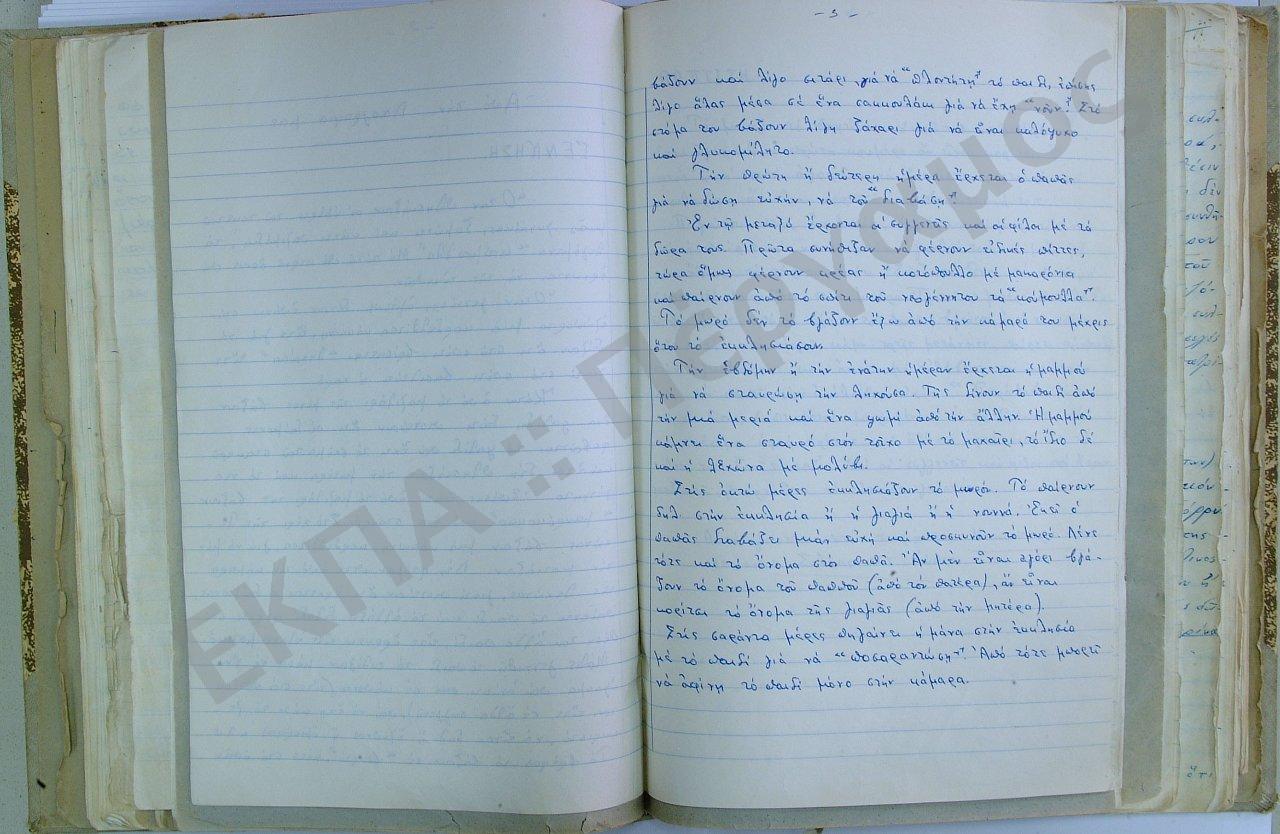 - 3 -
βάζουν καί λίγο σιτάρι, γιά νά "πλουτήση" τό παιδί, ἐπίσης
λίγο ἅλας μέσα σέ ἕνα σακκουλάκι γιά νά ἔχη "νοῦν". Στό
στόμα του βάζουν λίγη ζάχαρι γιά νά εἶναι καλόψυχο
καί γλυκομίλητο.
Τήν πρώτη ἤ δεύτερη ἡμέρα ἔρχεται ὁ παπᾶς
γιά νά δώση εὐχήν, νά τοῦ "διαβάση".
Ἐν τῷ μεταξύ ἔρχονται οἱ συγγενεῖς καί οἱ φίλοι μέ τά
δῶρα τους. Πρῶτα συνήθιζαν νά φέρνουν εἰδικές πίττες,
τώρα ὅμως φέρνουν κρέας ἤ κοτόπουλλο μέ μακαρόνια
καί παίρνουν ἀπό τό σπίτι τοῦ νεογέννητου τά "κούμουλλα".
Τό μωρό δέν τό βγάζουν ἔξω ἀπό τήν κάμαρά του μέχρις
ὅτου τό ἐκκλησιάσουν.
Τήν ἑβδόμην ἤ τήν ἐνάτην ἡμέραν ἔρχεται ἡ μαμμού
γιά νά σταυρώση τήν λεχούσα. Τῆς δίνουν τό παιδί ἀπό
τήν μιά μεριά καί ἕνα ψωμί ἀπό τήν ἄλλην. Ἡ μαμμού
κάμνει ἕνα σταυρό στόν τοῖχο μέ τό μαχαίρι, τό ἴδιο δέ
καί ἡ λεχώνα μέ μολύβι.
Στίς ὀκτώ μέρες ἐκκλησιάζουν τό μωρόν. Τό παίρνουν
δηλ. στήν ἐκκλησία ἤ ἡ γιαγιά ἤ ἡ νουνά. Ἐκεῖ ὁ
παπᾶς διαβάζει μιάν εὐχή καί προσκυνοῦν τό μωρό. Λένε
τότε καί τό ὄνομα στό παπᾶ. Ἄν μέν εἶναι ἀγόρι βγά-
ζουν τό ὄνομα τοῦ παπποῦ (ἀπό τόν πατέρα), ἄν εἶναι
κορίτσι τό ὄνομα τῆς γιαγιᾶς (ἀπό τήν μητέρα).
Στίς σαράντα μέρες πηγαίνει ἡ μάνα στήν ἐκκλησία
μέ τό παιδί γιά νά "ποσαραντώση". Ἀπό τότε μπορεῖ
νά ἀφίνη τό παιδί μόνο στήν κάμαρα.
ΕΚΠΑ :: Πέργαμος